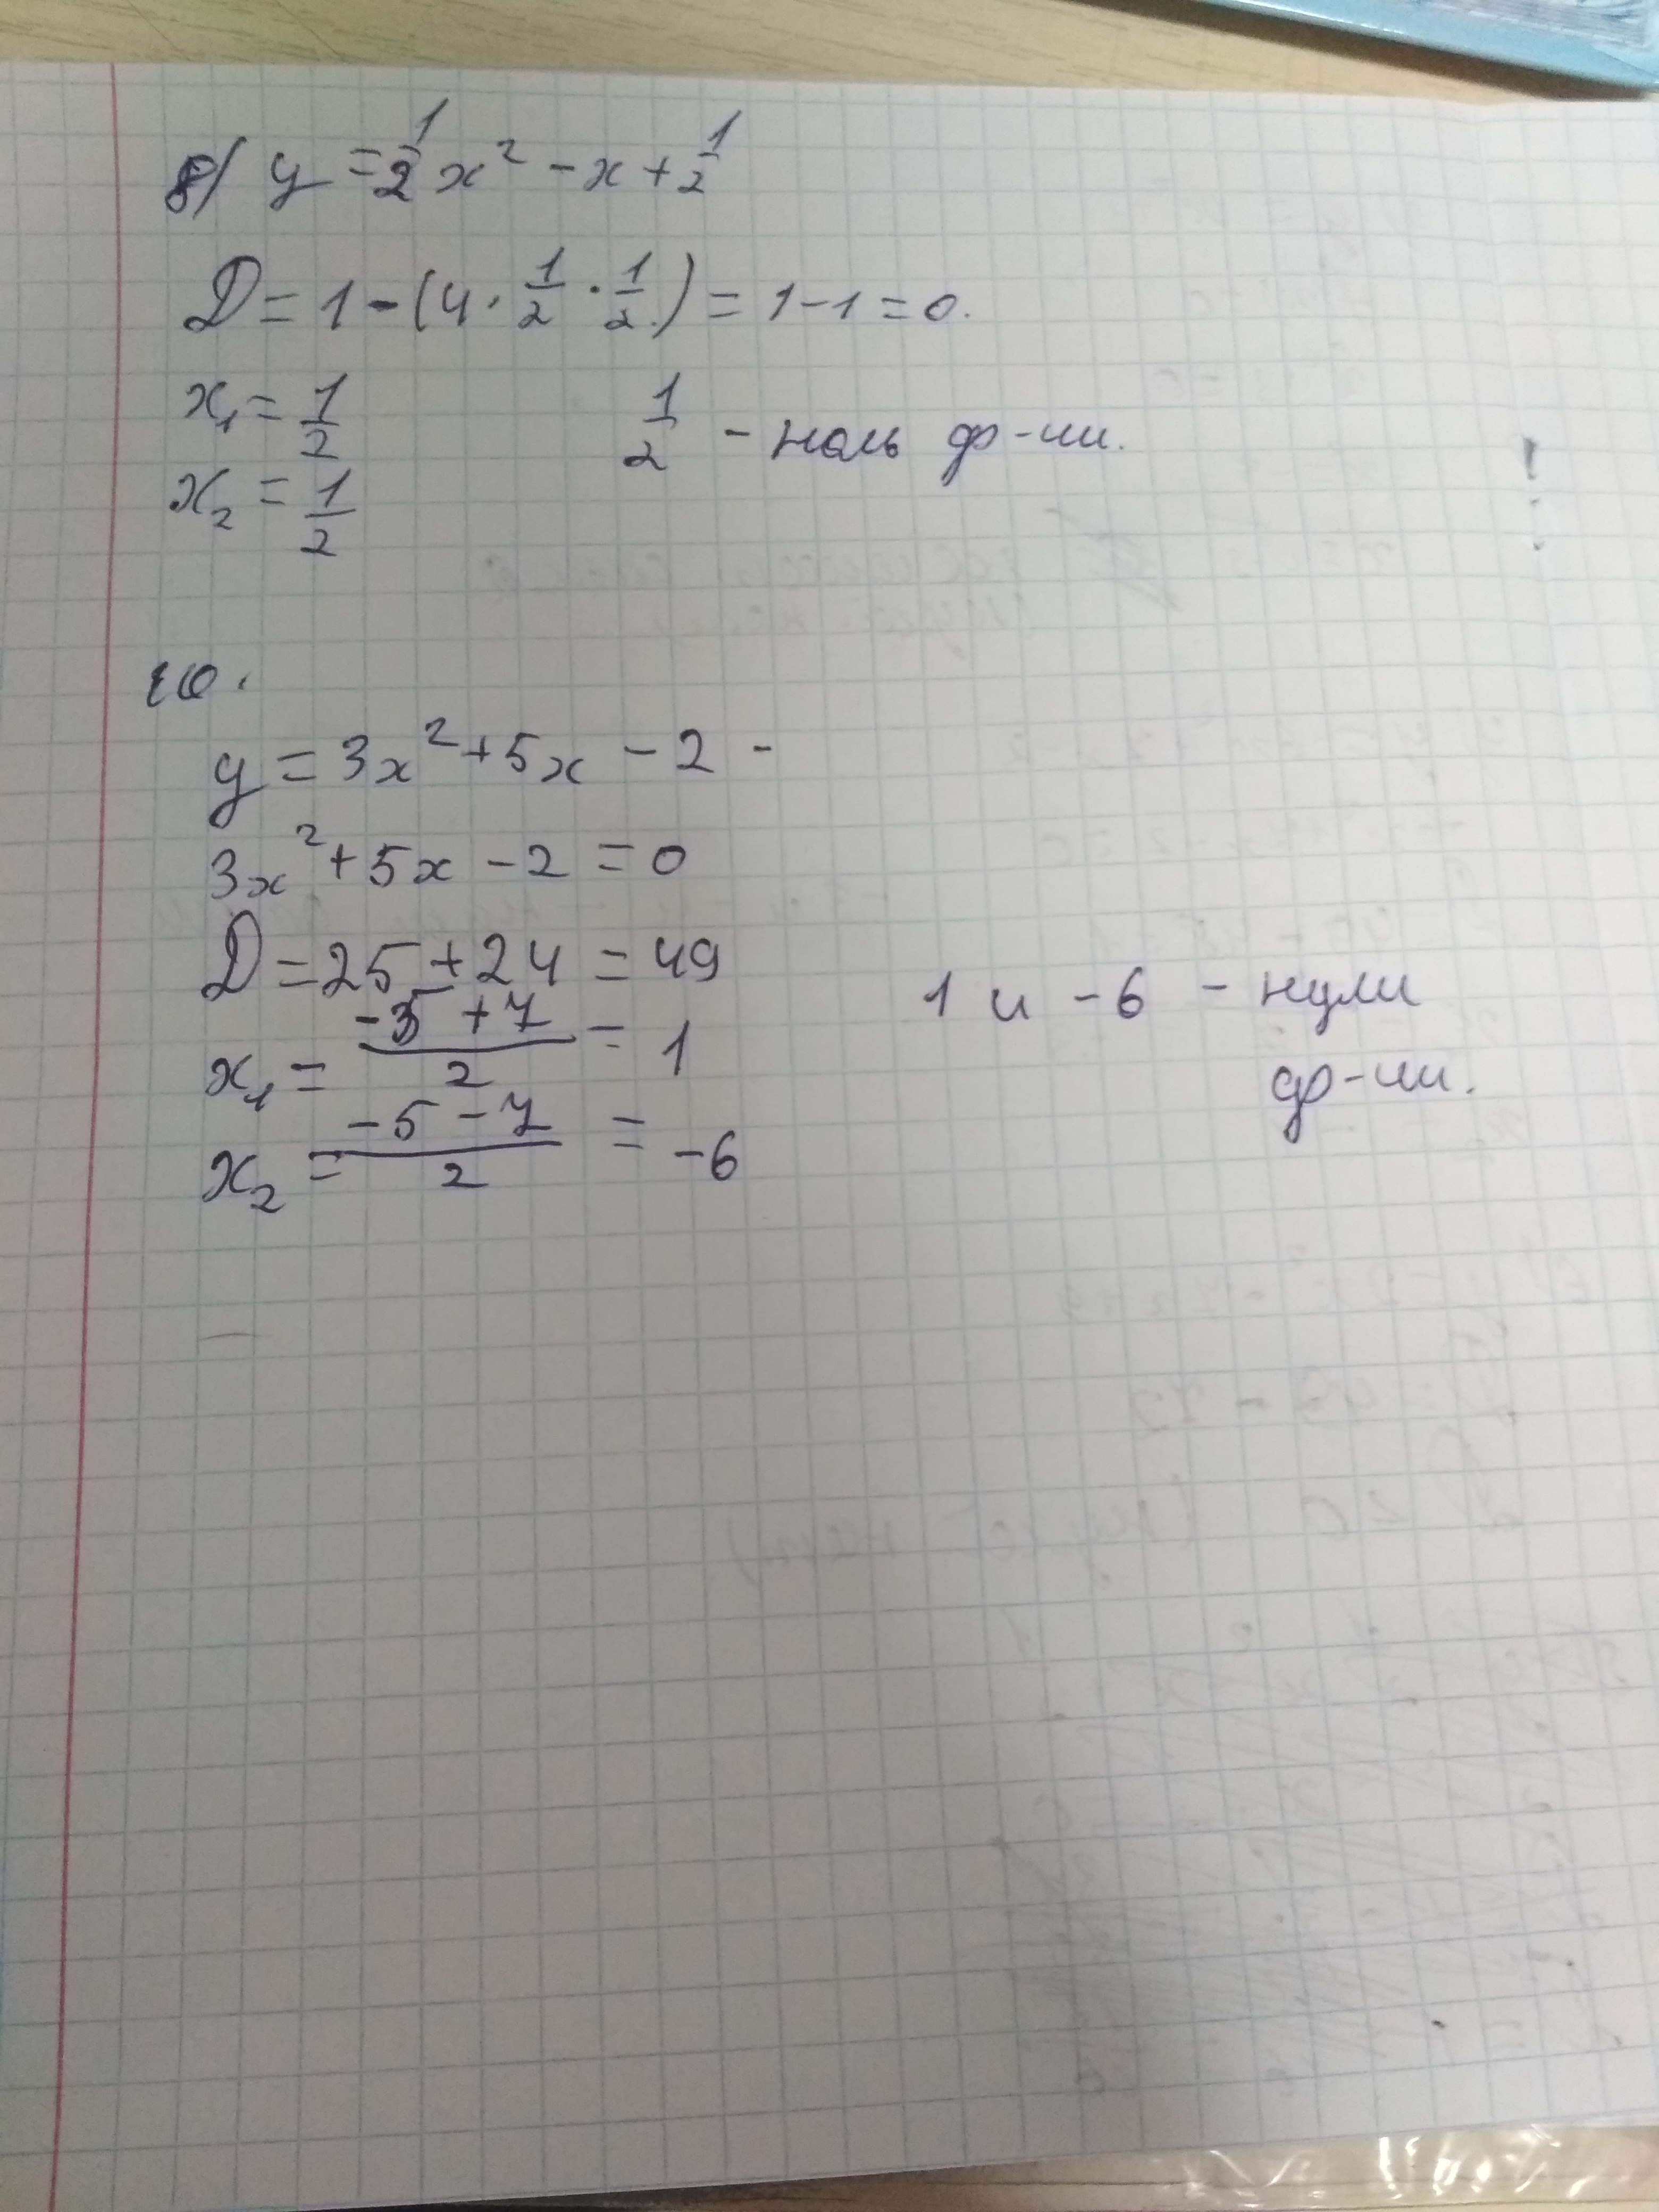 8) y = 1/2 x² - x + 1/2
D = 1 - (4 · 1/2 · 1/2) = 1 - 1 = 0.
x₁ = 1/2
1/2 - ноль ф-ии.
x₂ = 1/2
10.
y = 3x² + 5x - 2 -
3x² + 5x - 2 = 0
D = 25 + 24 = 49
x₁ = (-5 + 7)/2 = 1
x₂ = (-5 - 7)/2 = -6
1 и -6 - нули
ф-ии.